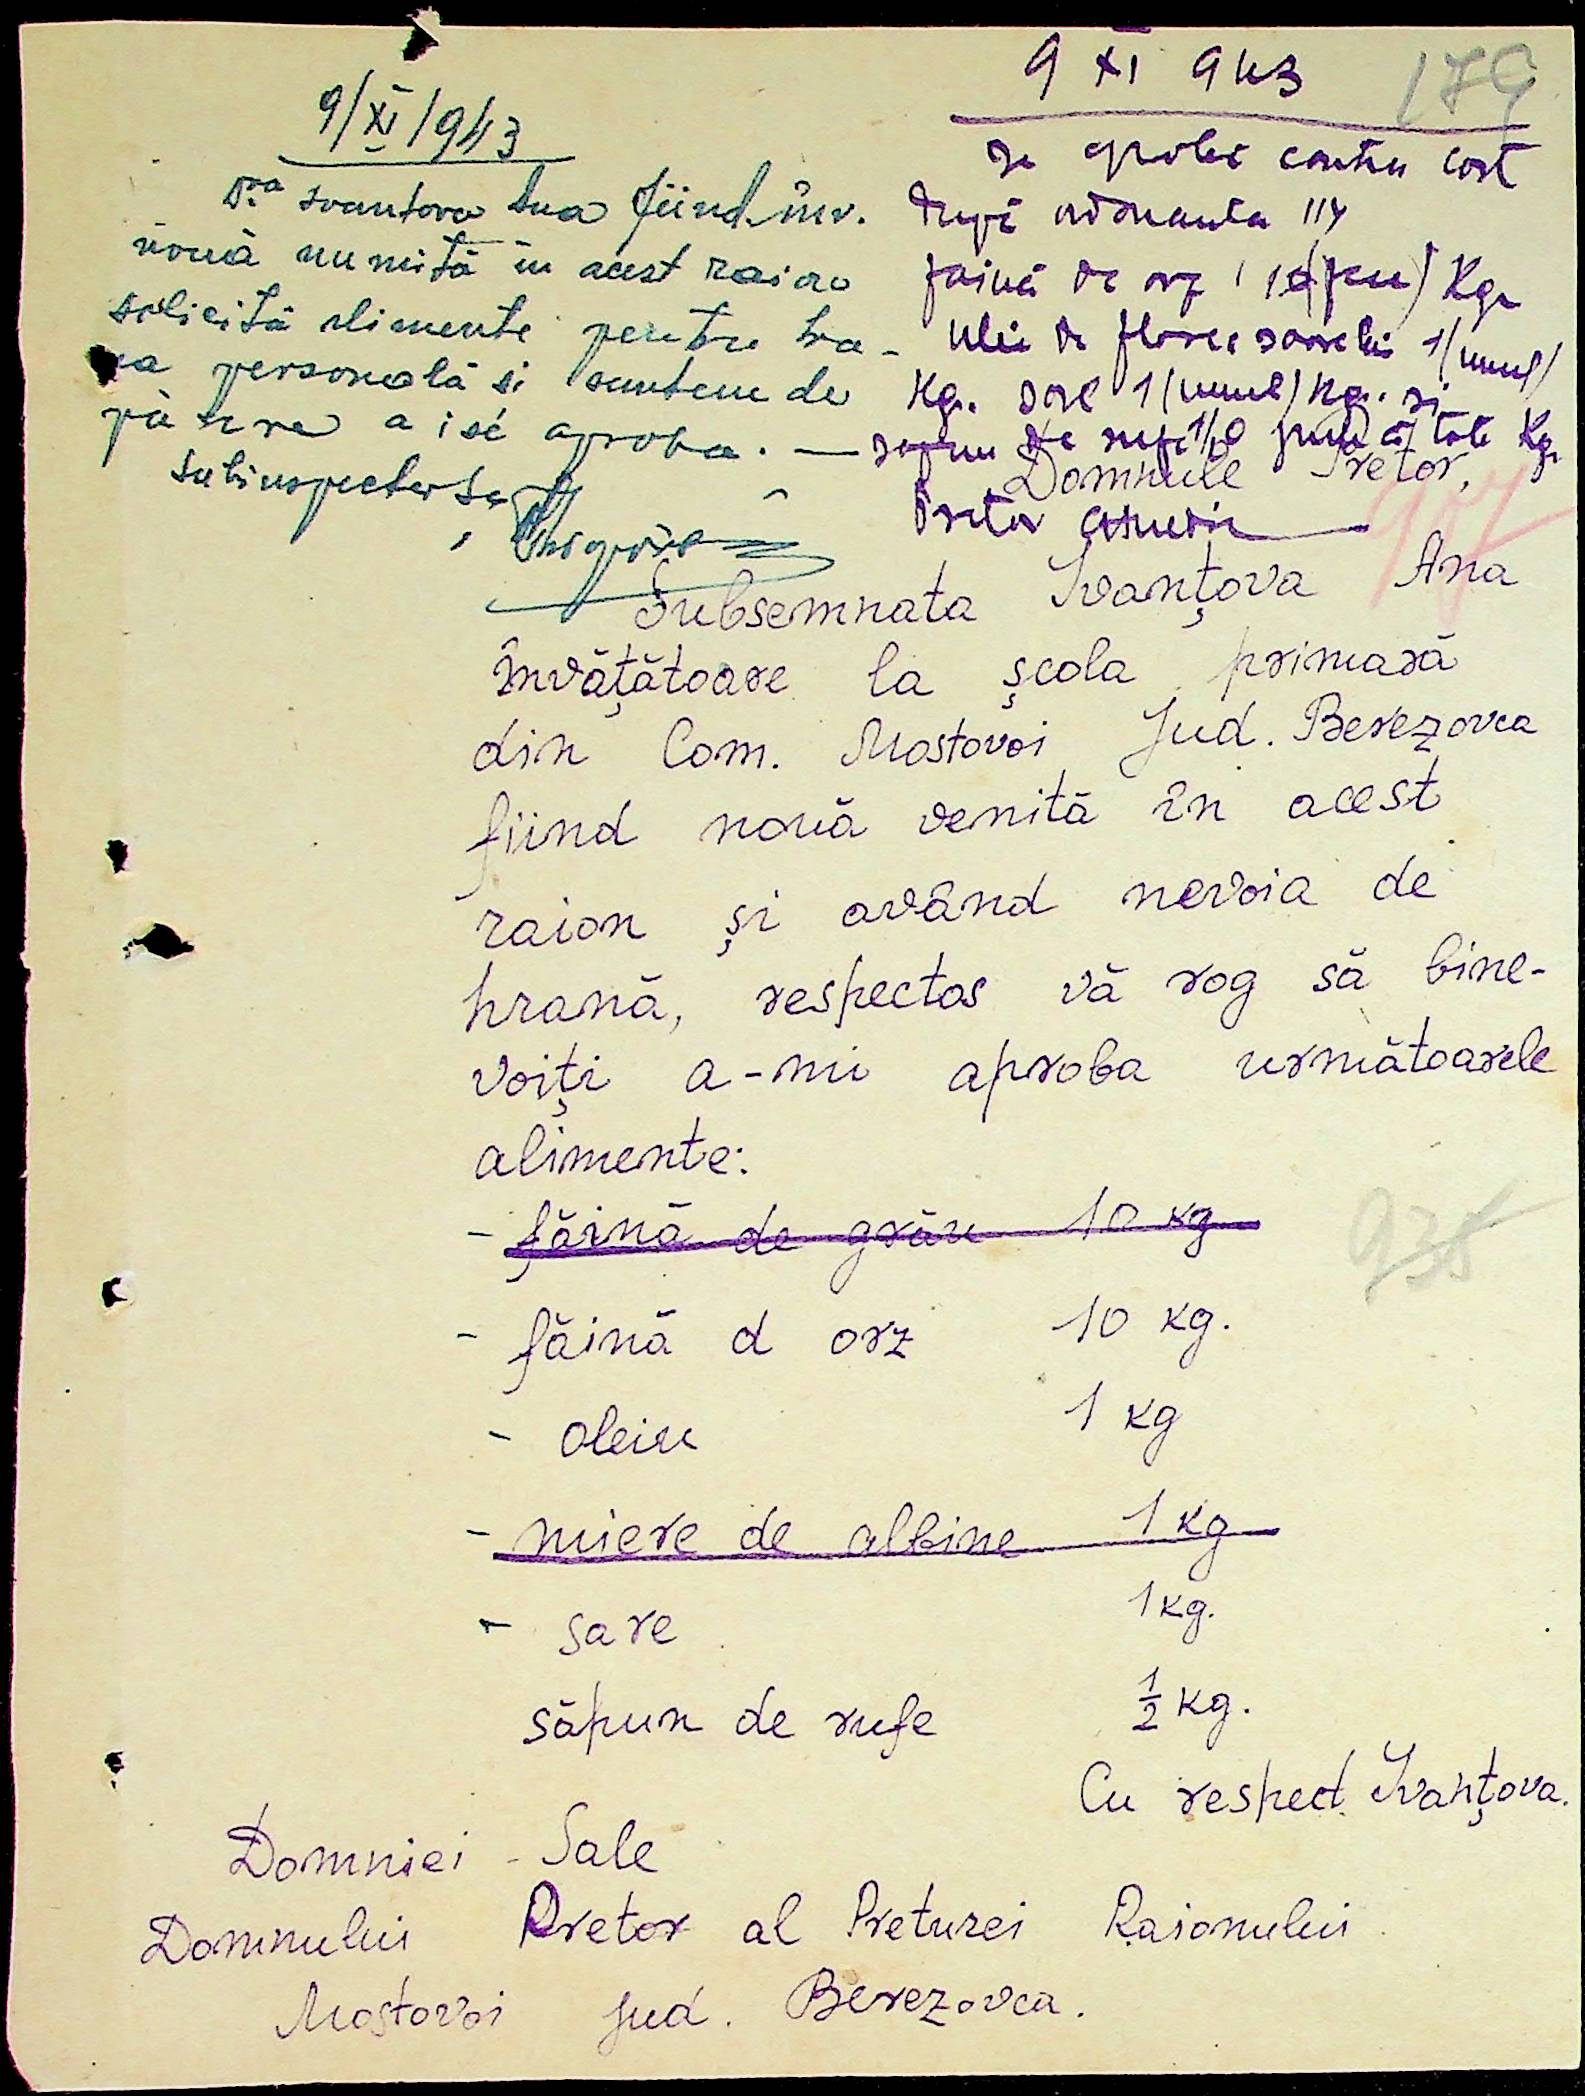 179
9/XI/1943
D.ra Ivantova Ana fiind înv.
nouă numită în acest raion
solicită alimente pentru hra-
na personală si suntem de
părere a i sé aproba. —
Subinspector
9 XI 943
se aprobă contra cost
după ordonanta 114
faină de orz 10 (zece) Kgr
Ulei de floarea soarelui 1/unul/
Kg. sare 1 (unul) Kg. si
sapun de rufe 1/2 jumătate Kg.
Pretor
Domnule Pretor,
907
Subsemnata Ivanțova Ana
învățătoare la școla primară
din Com. Mostovoi Jud. Berezovca
fiind nouă venită în acest
raion și având nevoia de
hrană, respectos vă rog să bine-
voiți a-mi aproba următoarele
alimente:
- făină de grâu 10 kg
938
- făină d orz 10 kg.
- oleiu 1 kg
- miere de albine 1 kg
- sare 1 kg.
săpun de rufe 1/2 kg.
Cu respect Ivanțova.
Domniei - Sale
Domnului Pretor al Preturei Raionului
Mostovoi jud. Berezovca.